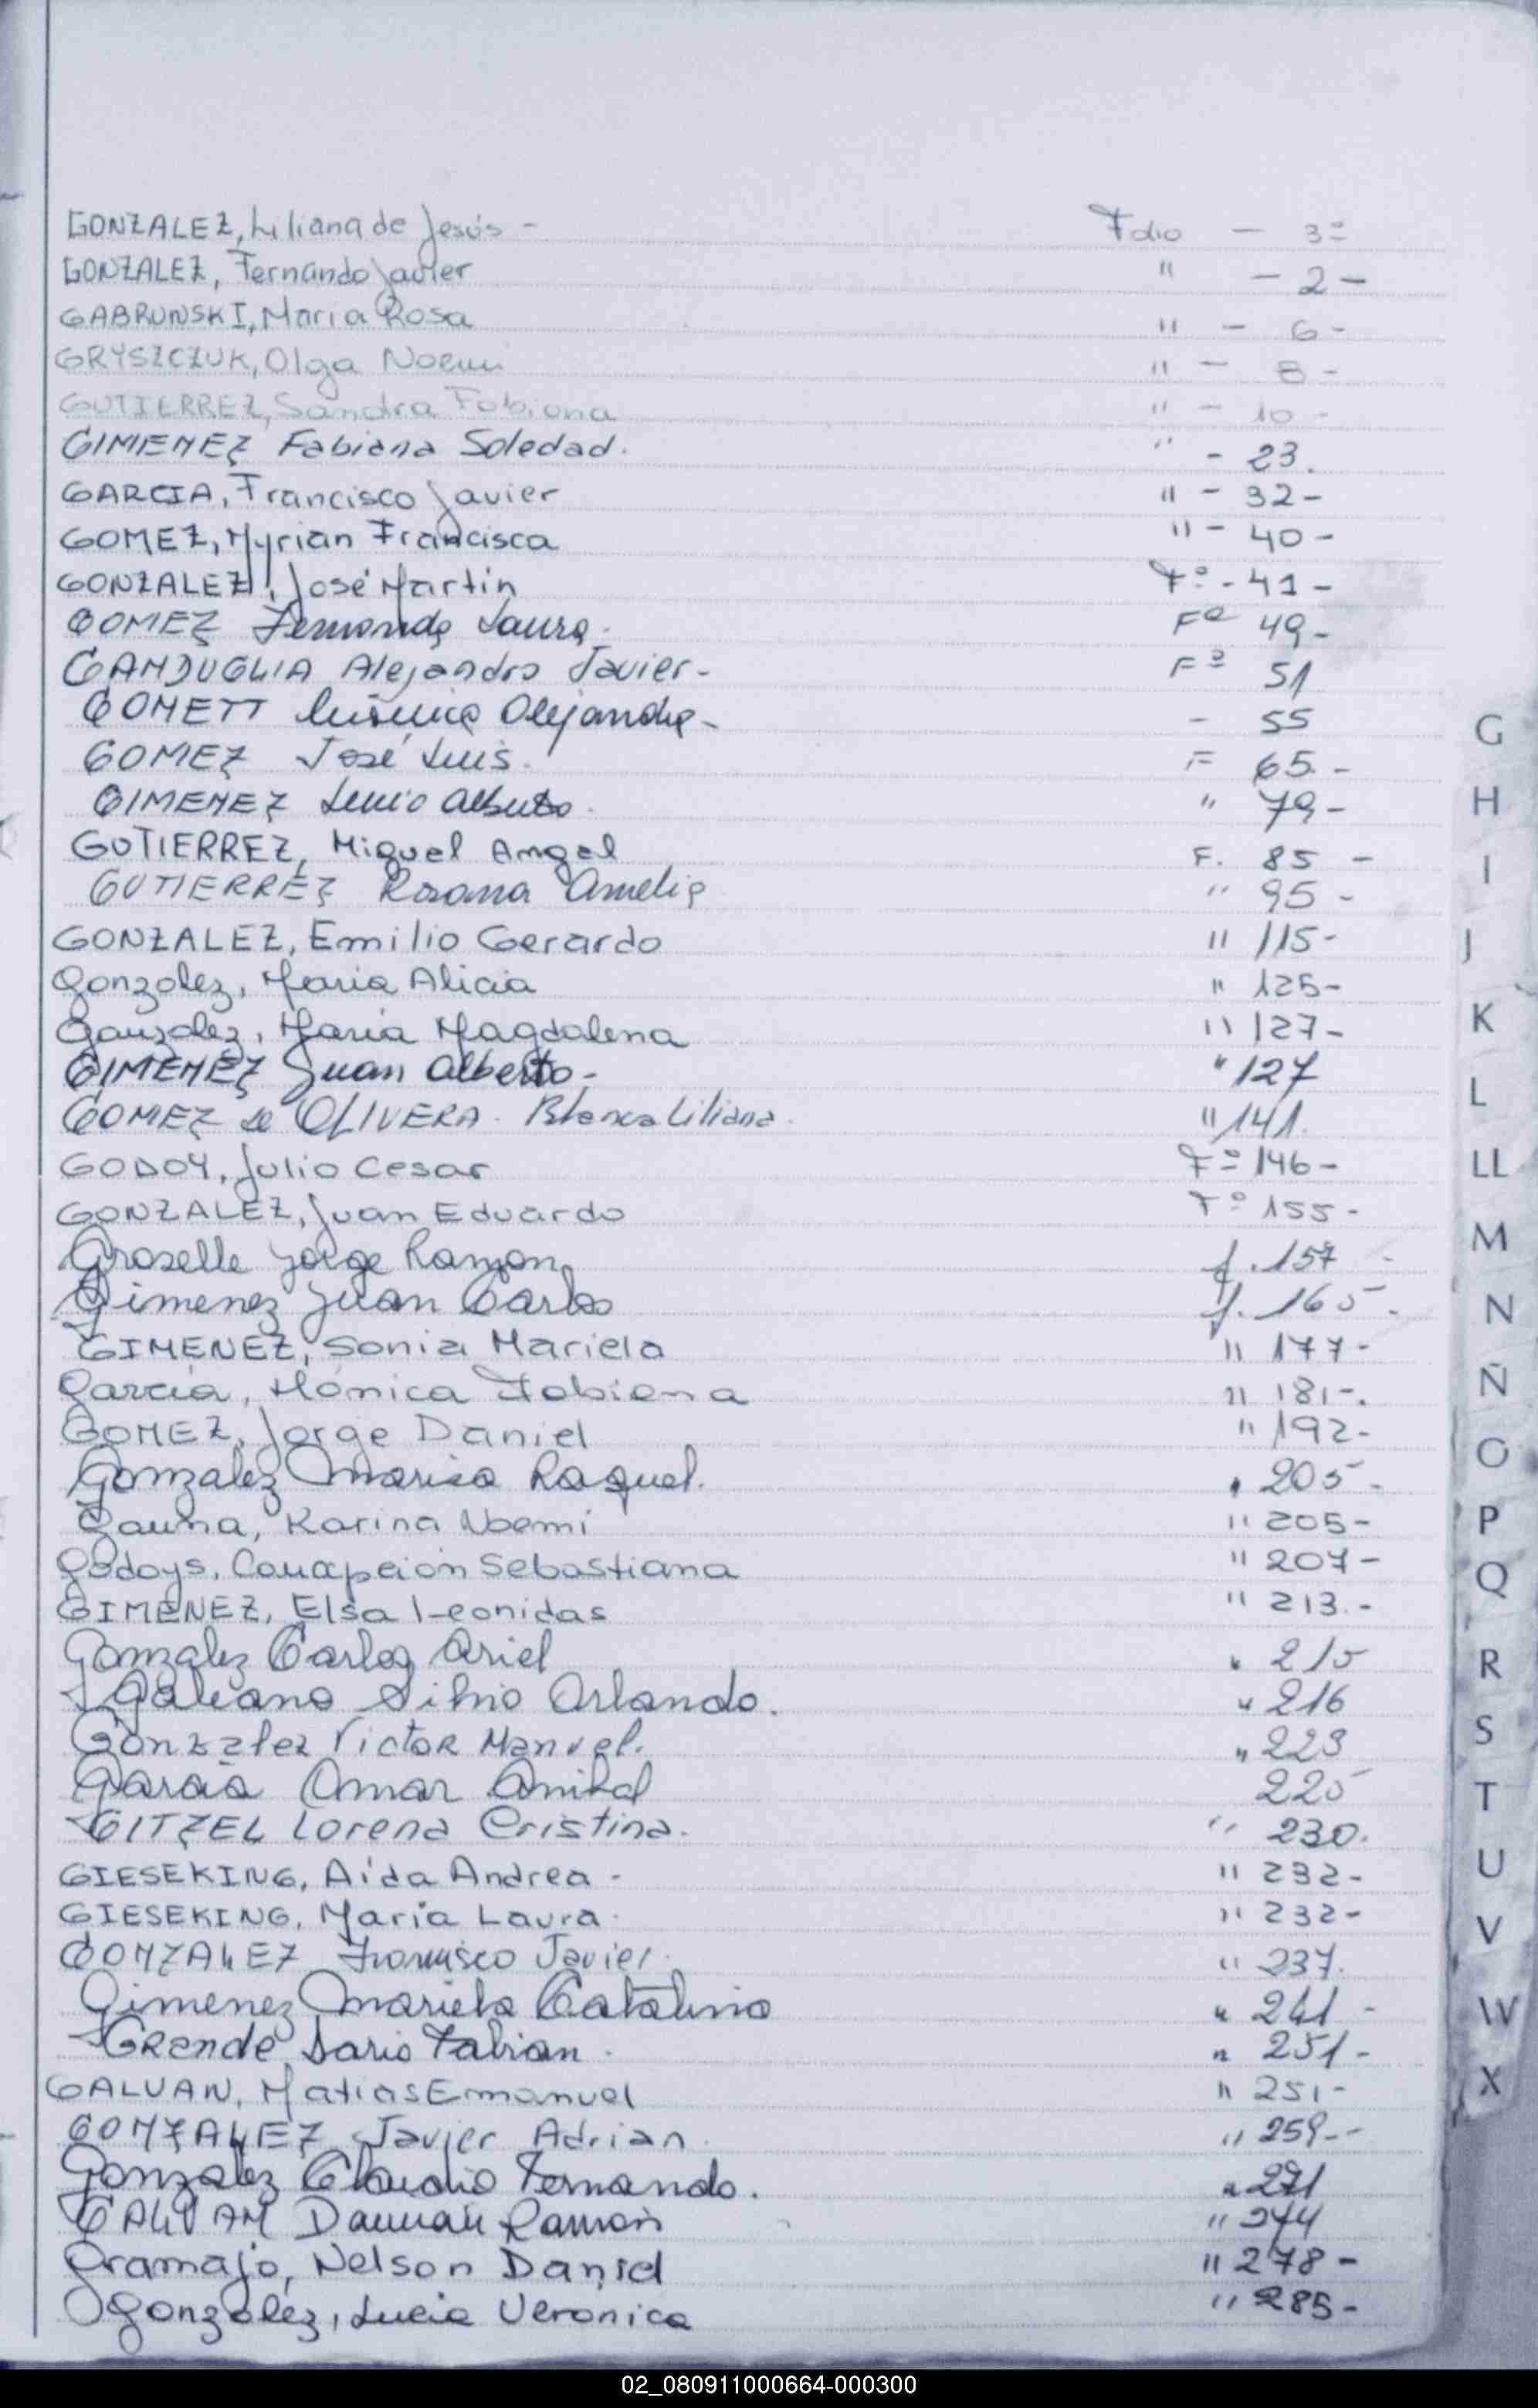 GONZALEZ, Liliana de Jesús - Folio - 3=
GONZALEZ, Fernando Javier " - 2 -
GABRUNSKI, Maria Rosa " - 6 -
GRYSZCZUK, Olga Noemi " - 8 -
GUTIERREZ, Sandra Fabiana " - 10 -
GIMENEZ Fabiana Soledad. " - 23.
GARCIA, Francisco Javier " - 32 -
GOMEZ, Myrian Francisca " - 40 -
GONZALEZ, José Martin Fº - 41 -
GOMEZ Fernanda Laura. Fº 49 -
GANDUGLIA Alejandro Javier - Fº 51
GOMETT Alejandra - - 55
GOMEZ José Luis. F 65. -
GIMENEZ Lucio Alberto. " 79 -
GUTIERREZ, Miguel Angel F. 85 -
GUTIERREZ Rosana Amelia " 95 -
GONZALEZ, Emilio Gerardo " 115 -
Gonzalez, Maria Alicia " 125 -
Gonzalez, Maria Magdalena " 127 -
GIMENEZ Juan Alberto - " 127
GOMEZ de OLIVERA. Blanca Liliana. " 141.
GODOY, Julio Cesar Fº 146 -
GONZALEZ, Juan Eduardo Fº 155 -
Groselle Jorge Ramon f. 157 -
Gimenez Juan Carlos f. 165 -
GIMENEZ, Sonia Mariela " 177 -
Garcia, Mónica Fabiana " 181 -.
GOMEZ, Jorge Daniel " 192 -
Gonzalez Marisa Raquel. " 205 -
Gauna, Karina Noemi " 205 -
Godoys, Concepción Sebastiana " 207 -
GIMENEZ, Elsa Leonidas " 213. -
Gonzalez Carlos Ariel " 215
Galeano Silvio Orlando. " 216
Gonzalez Victor Manuel. " 223
Garcia Omar Anibal 225
GITZEL Lorena Cristina. " 230.
GIESEKING, Aida Andrea - " 232 -
GIESEKING, Maria Laura. " 232 -
GONZALEZ Francisco Javier. " 237.
Gimenez Mariela Catalina " 241 -
Grende Dario Fabian. " 251 -
GALVAN, Matias Emanuel " 251 -
GONZALEZ Javier Adrian. " 259 --
Gonzalez Claudio Fernando. " 271
GALVAN Damian Ramon " 274
Gramajo, Nelson Daniel " 278 -
Gonzalez, Lucia Veronica " 285 -
G
H
I
J
K
L
LL
M
N
Ñ
O
P
Q
R
S
T
U
V
W
X
02_080911000664-000300